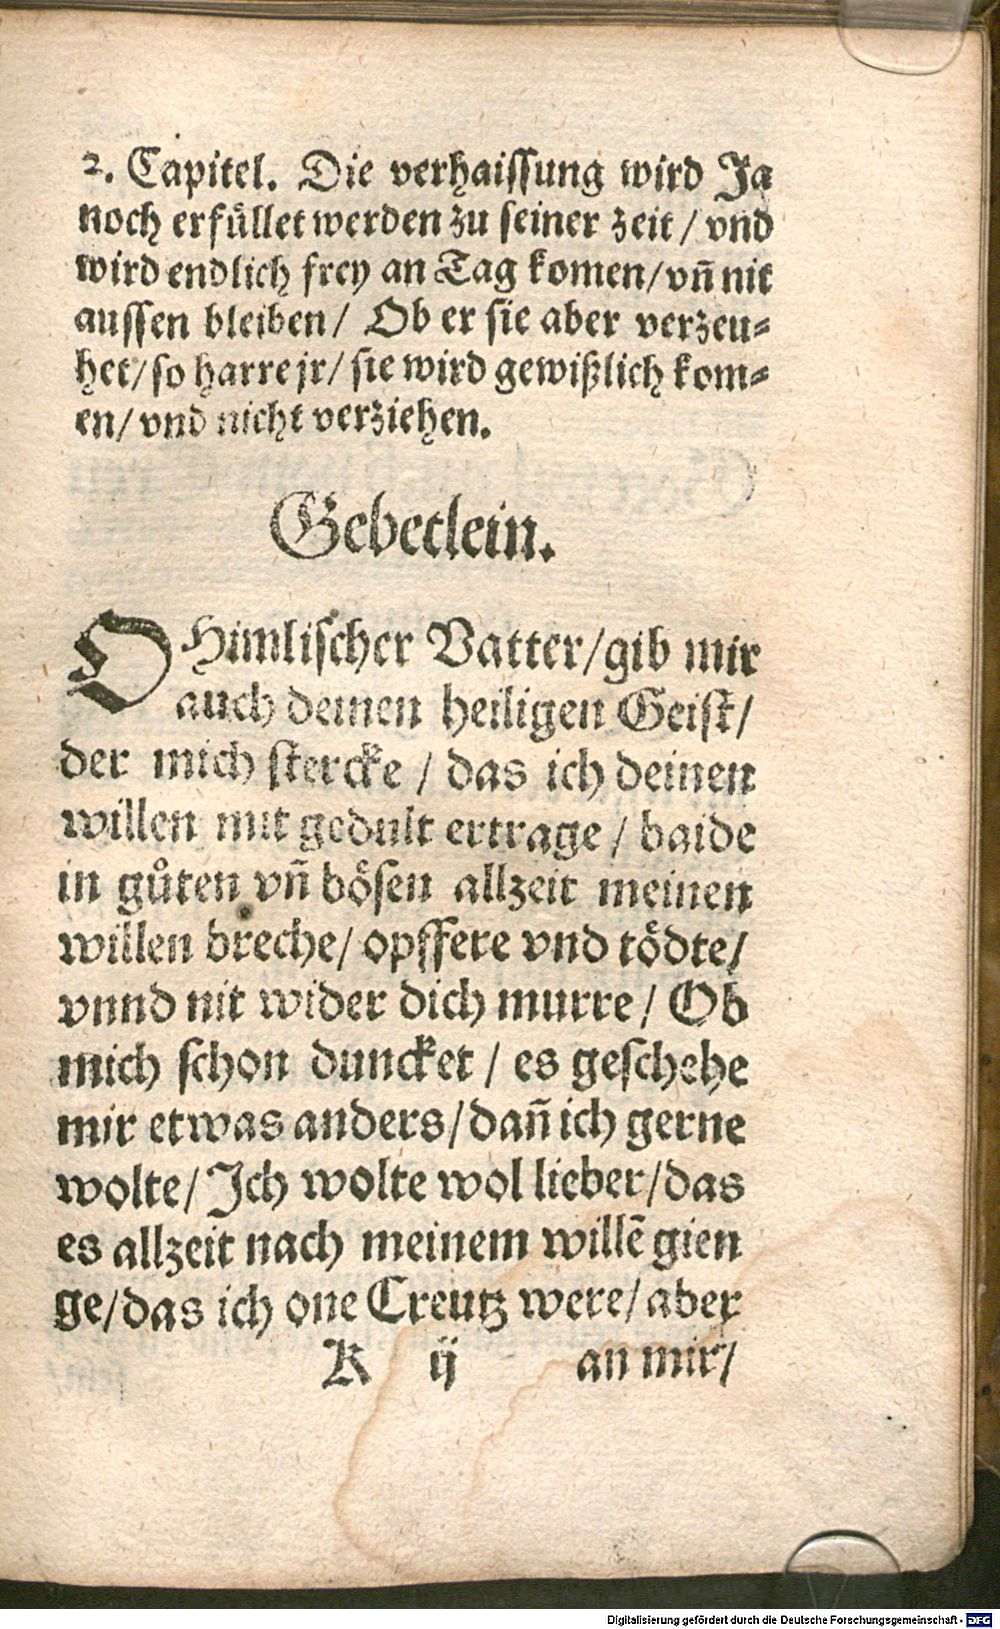 2. Capitel. Die verhaissung wird Ja
noch erfüllet werden zu seiner zeit / vnd
wird endlich frey an Tag komen/ vñ nit
aussen bleiben / Ob er sie aber verzeu-
het / so harre jr / sie wird gewißlich kom-
en / vnd nicht verziehen.
Gebetlein.
O Himlischer Vatter / gib mir
auch deinen heiligen Geist /
der mich stercke / das ich deinen
willen mit gedult ertrage / baide
in gůten vñ bösen allzeit meinen
willen breche / opffere vnd tödte /
vnnd nit wider dich murre / Ob
mich schon duncket / es geschehe
mir etwas anders / dañ ich gerne
wolte / Ich wolte wol lieber / das
es allzeit nach meinem willē gien
ge / das ich one Creutz were / aber
K ij an mir /
Digitalisierung gefördert durch die Deutsche Forschungsgemeinschaft - DFG